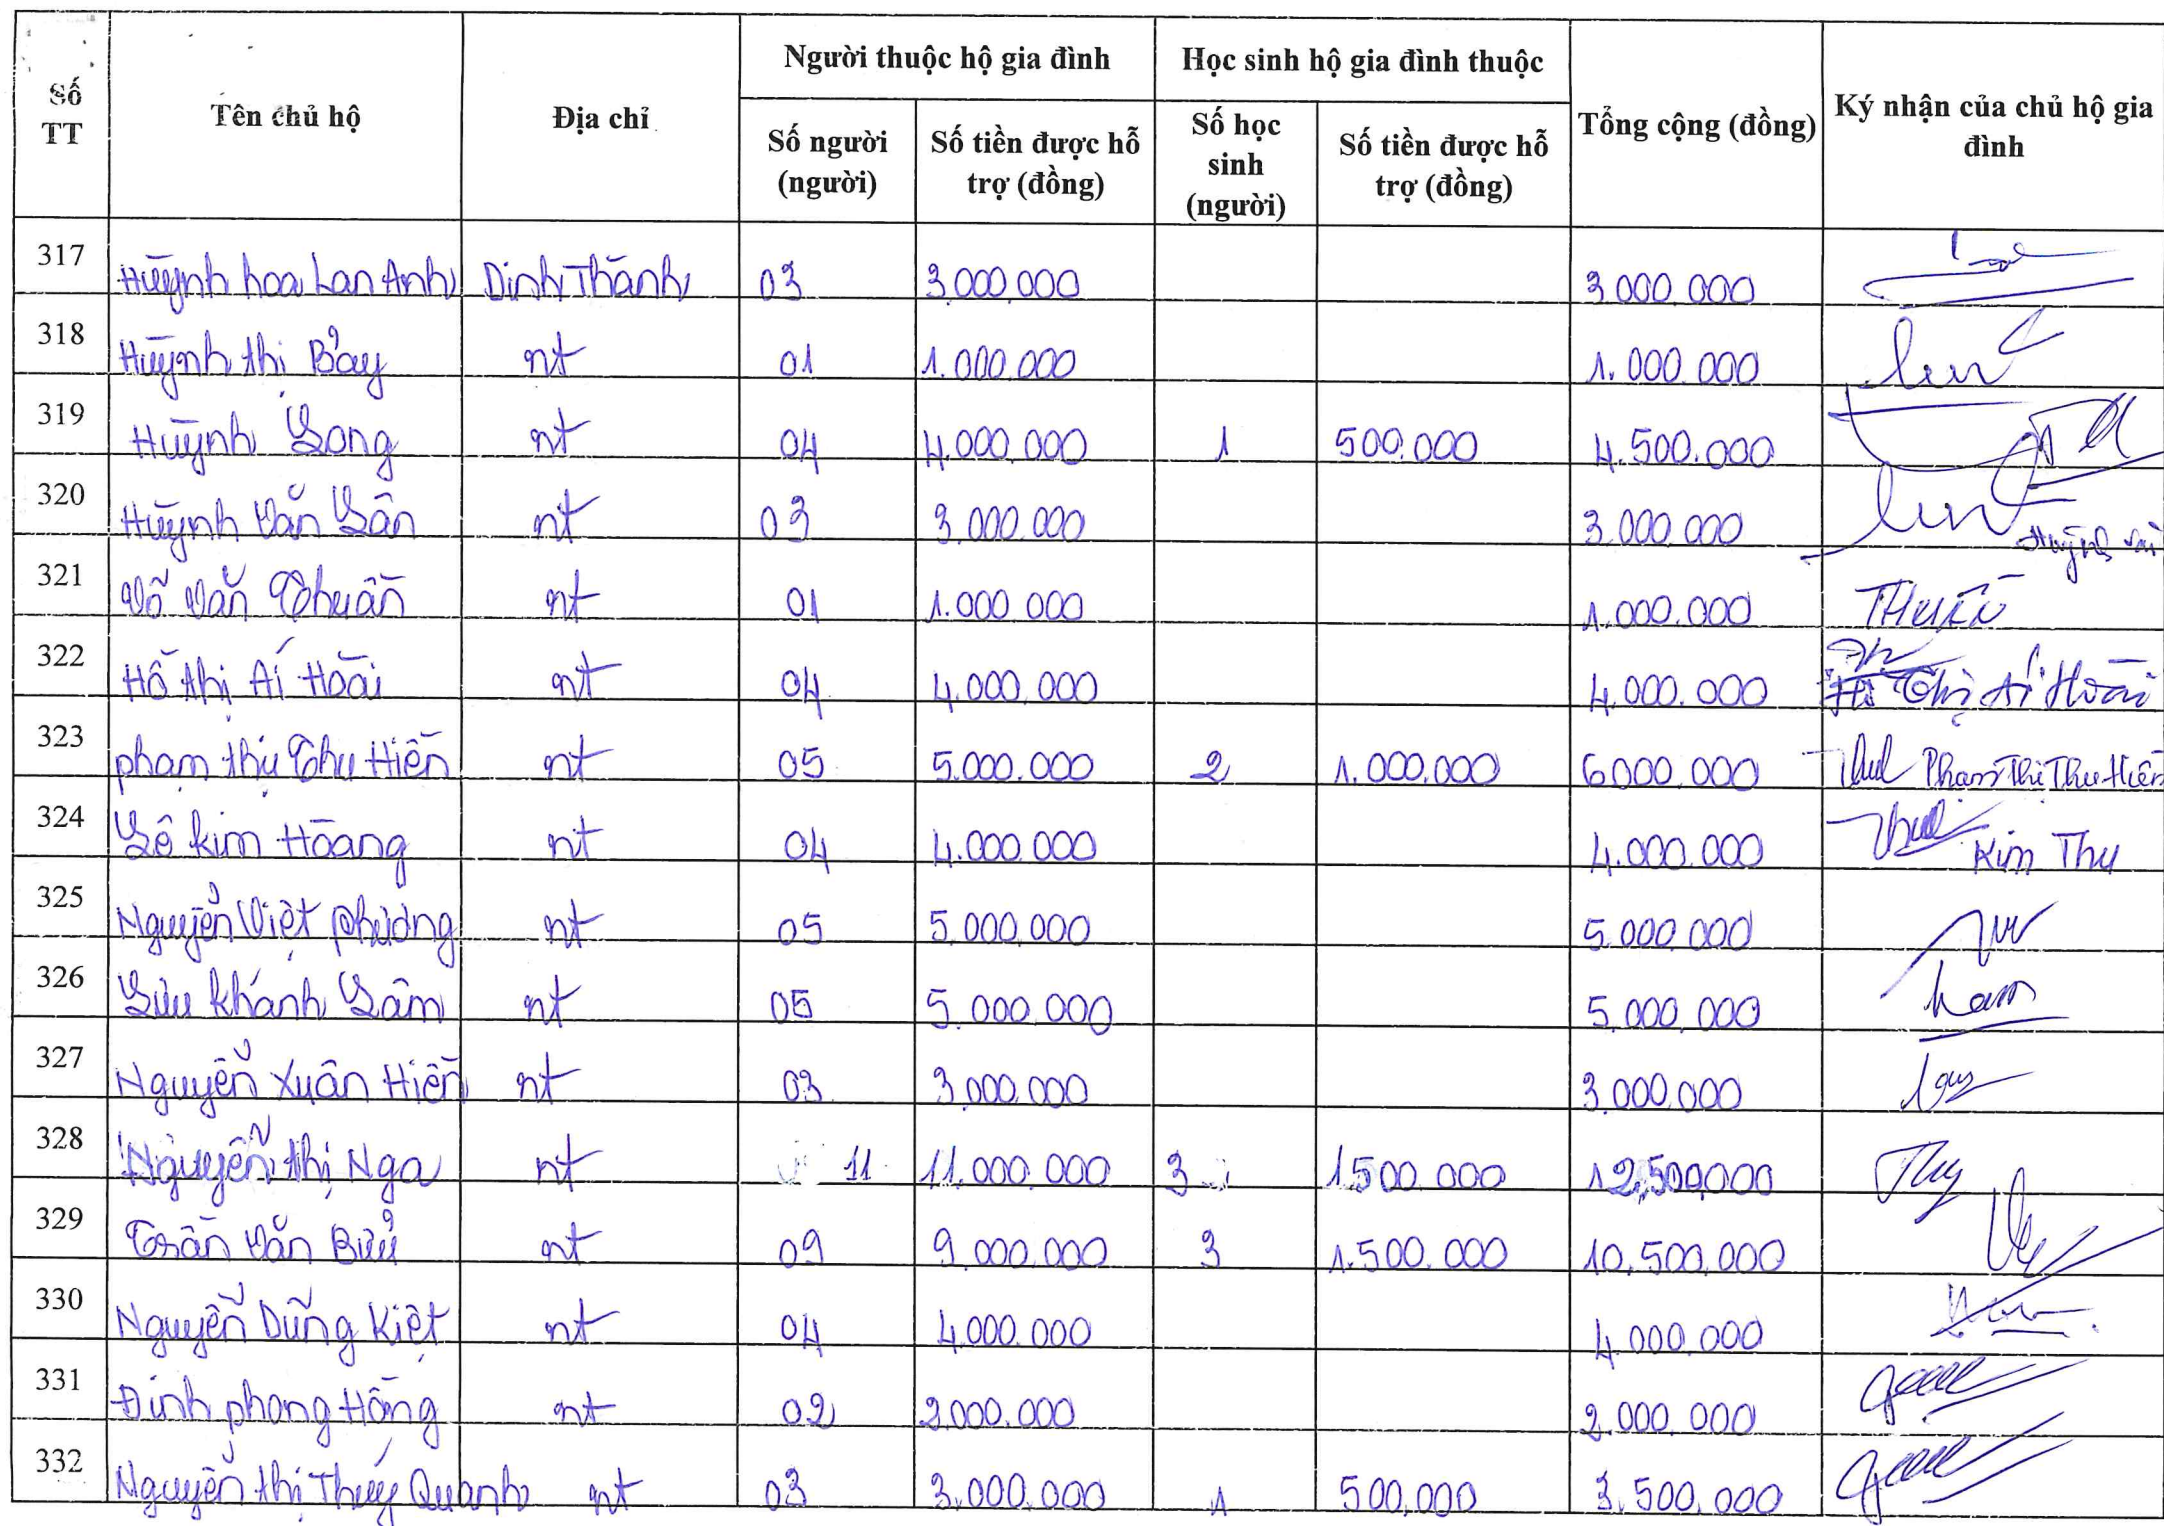 Người thuộc hộ gia đình Học sinh hộ gia đình thuộc
Số TT Tên chủ hộ Địa chỉ Số người (người) Số tiền được hỗ trợ (đồng) Số học sinh (người) Số tiền được hỗ trợ (đồng) Tổng cộng (đồng) Ký nhận của chủ hộ gia đình
317 Huỳnh hoa Lan Anh Định Thành 03 3.000.000 3.000.000
318 Huỳnh thị Bảy nt 01 1.000.000 1.000.000
319 Huỳnh Long nt 04 4.000.000 1 500.000 4.500.000
320 Huỳnh Văn Lân nt 03 3.000.000 3.000.000 Huỳnh văn
321 Võ Văn Thuần nt 01 1.000.000 1.000.000 THUẦN
322 Hồ thị Ái Hoài nt 04 4.000.000 4.000.000 Hồ Thị Ái Hoài
323 phạm thị Thu Hiền nt 05 5.000.000 2 1.000.000 6000.000 Phạm Thị Thu Hiền
324 Lê kim Hoàng nt 04 4.000.000 4.000.000 Kim Thu
325 Nguyễn Việt Phương nt 05 5.000.000 5.000.000
326 Lưu khánh Lâm nt 05 5.000.000 5.000.000 Lam
327 Nguyễn Xuân Hiền nt 03 3.000.000 3.000.000
328 Nguyễn thị Nga nt 11 11.000.000 3 1.500.000 12,500,000 Thy
329 Trần Văn Bửu nt 09 9.000.000 3 1.500.000 10.500.000
330 Nguyễn Dũng Kiệt nt 04 4.000.000 4.000.000
331 Đinh phong Hồng nt 02 2.000.000 2.000.000
332 Nguyễn thị Thuý Quanh nt 03 3.000.000 1 500.000 3.500.000